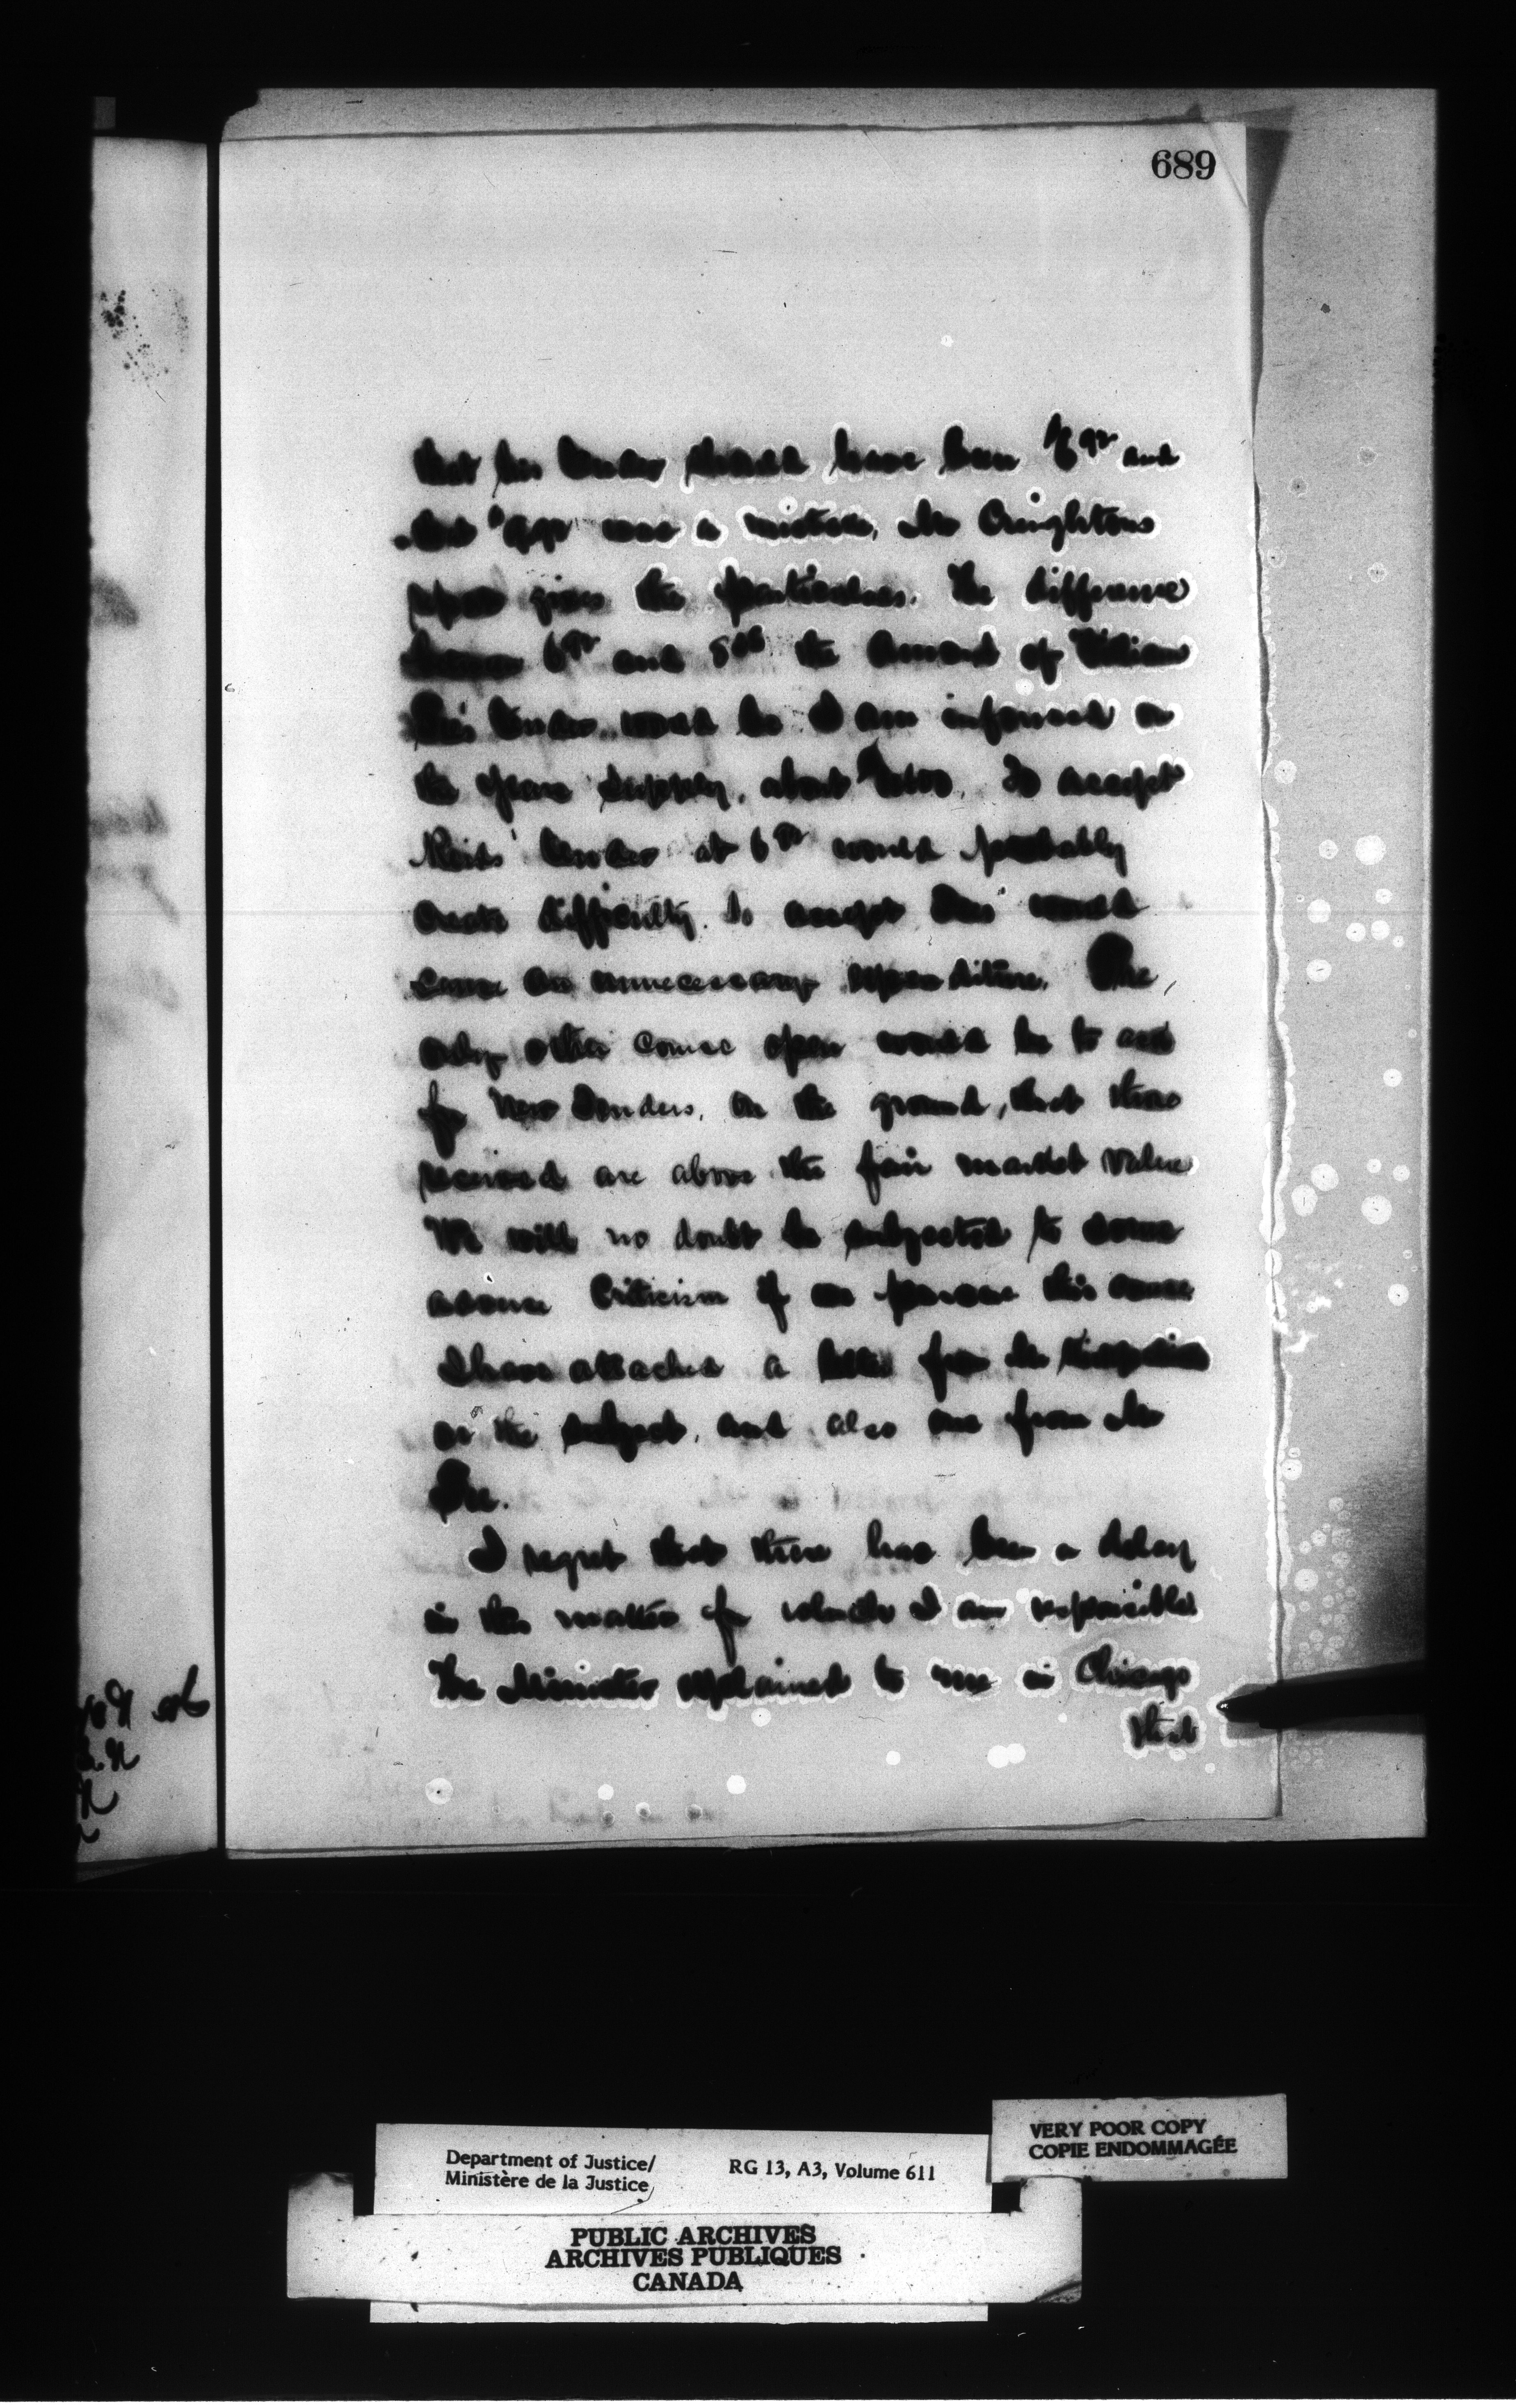 689
that his tender should have been 6 and
that was a mistake, Mr Creightons
report gives the particulars. The difference
between 6 and 5 the amount of William
tender would be I am informed on
the years supply, about To accept
Reids' tender at 6 would probably
create difficulty. To accept would
cause an unnecessary expenditure. The
only other course open would be to ask
for New Tenders, on the ground, that those
received are above the fair market value
We will no doubt be subjected to some
adverse Criticism if we pursue this course
I have attached a letter from Mr
on the subject, and also one from Mr
I regret that there has been a delay
in this matter for which I am responsible
The Minister explained to me in Chicago
that
VERY POOR COPY
COPIE ENDOMMAGÉE
Department of Justice/
Ministère de la Justice
RG 13, A3, Volume 611
PUBLIC ARCHIVES
ARCHIVES PUBLIQUES
CANADA